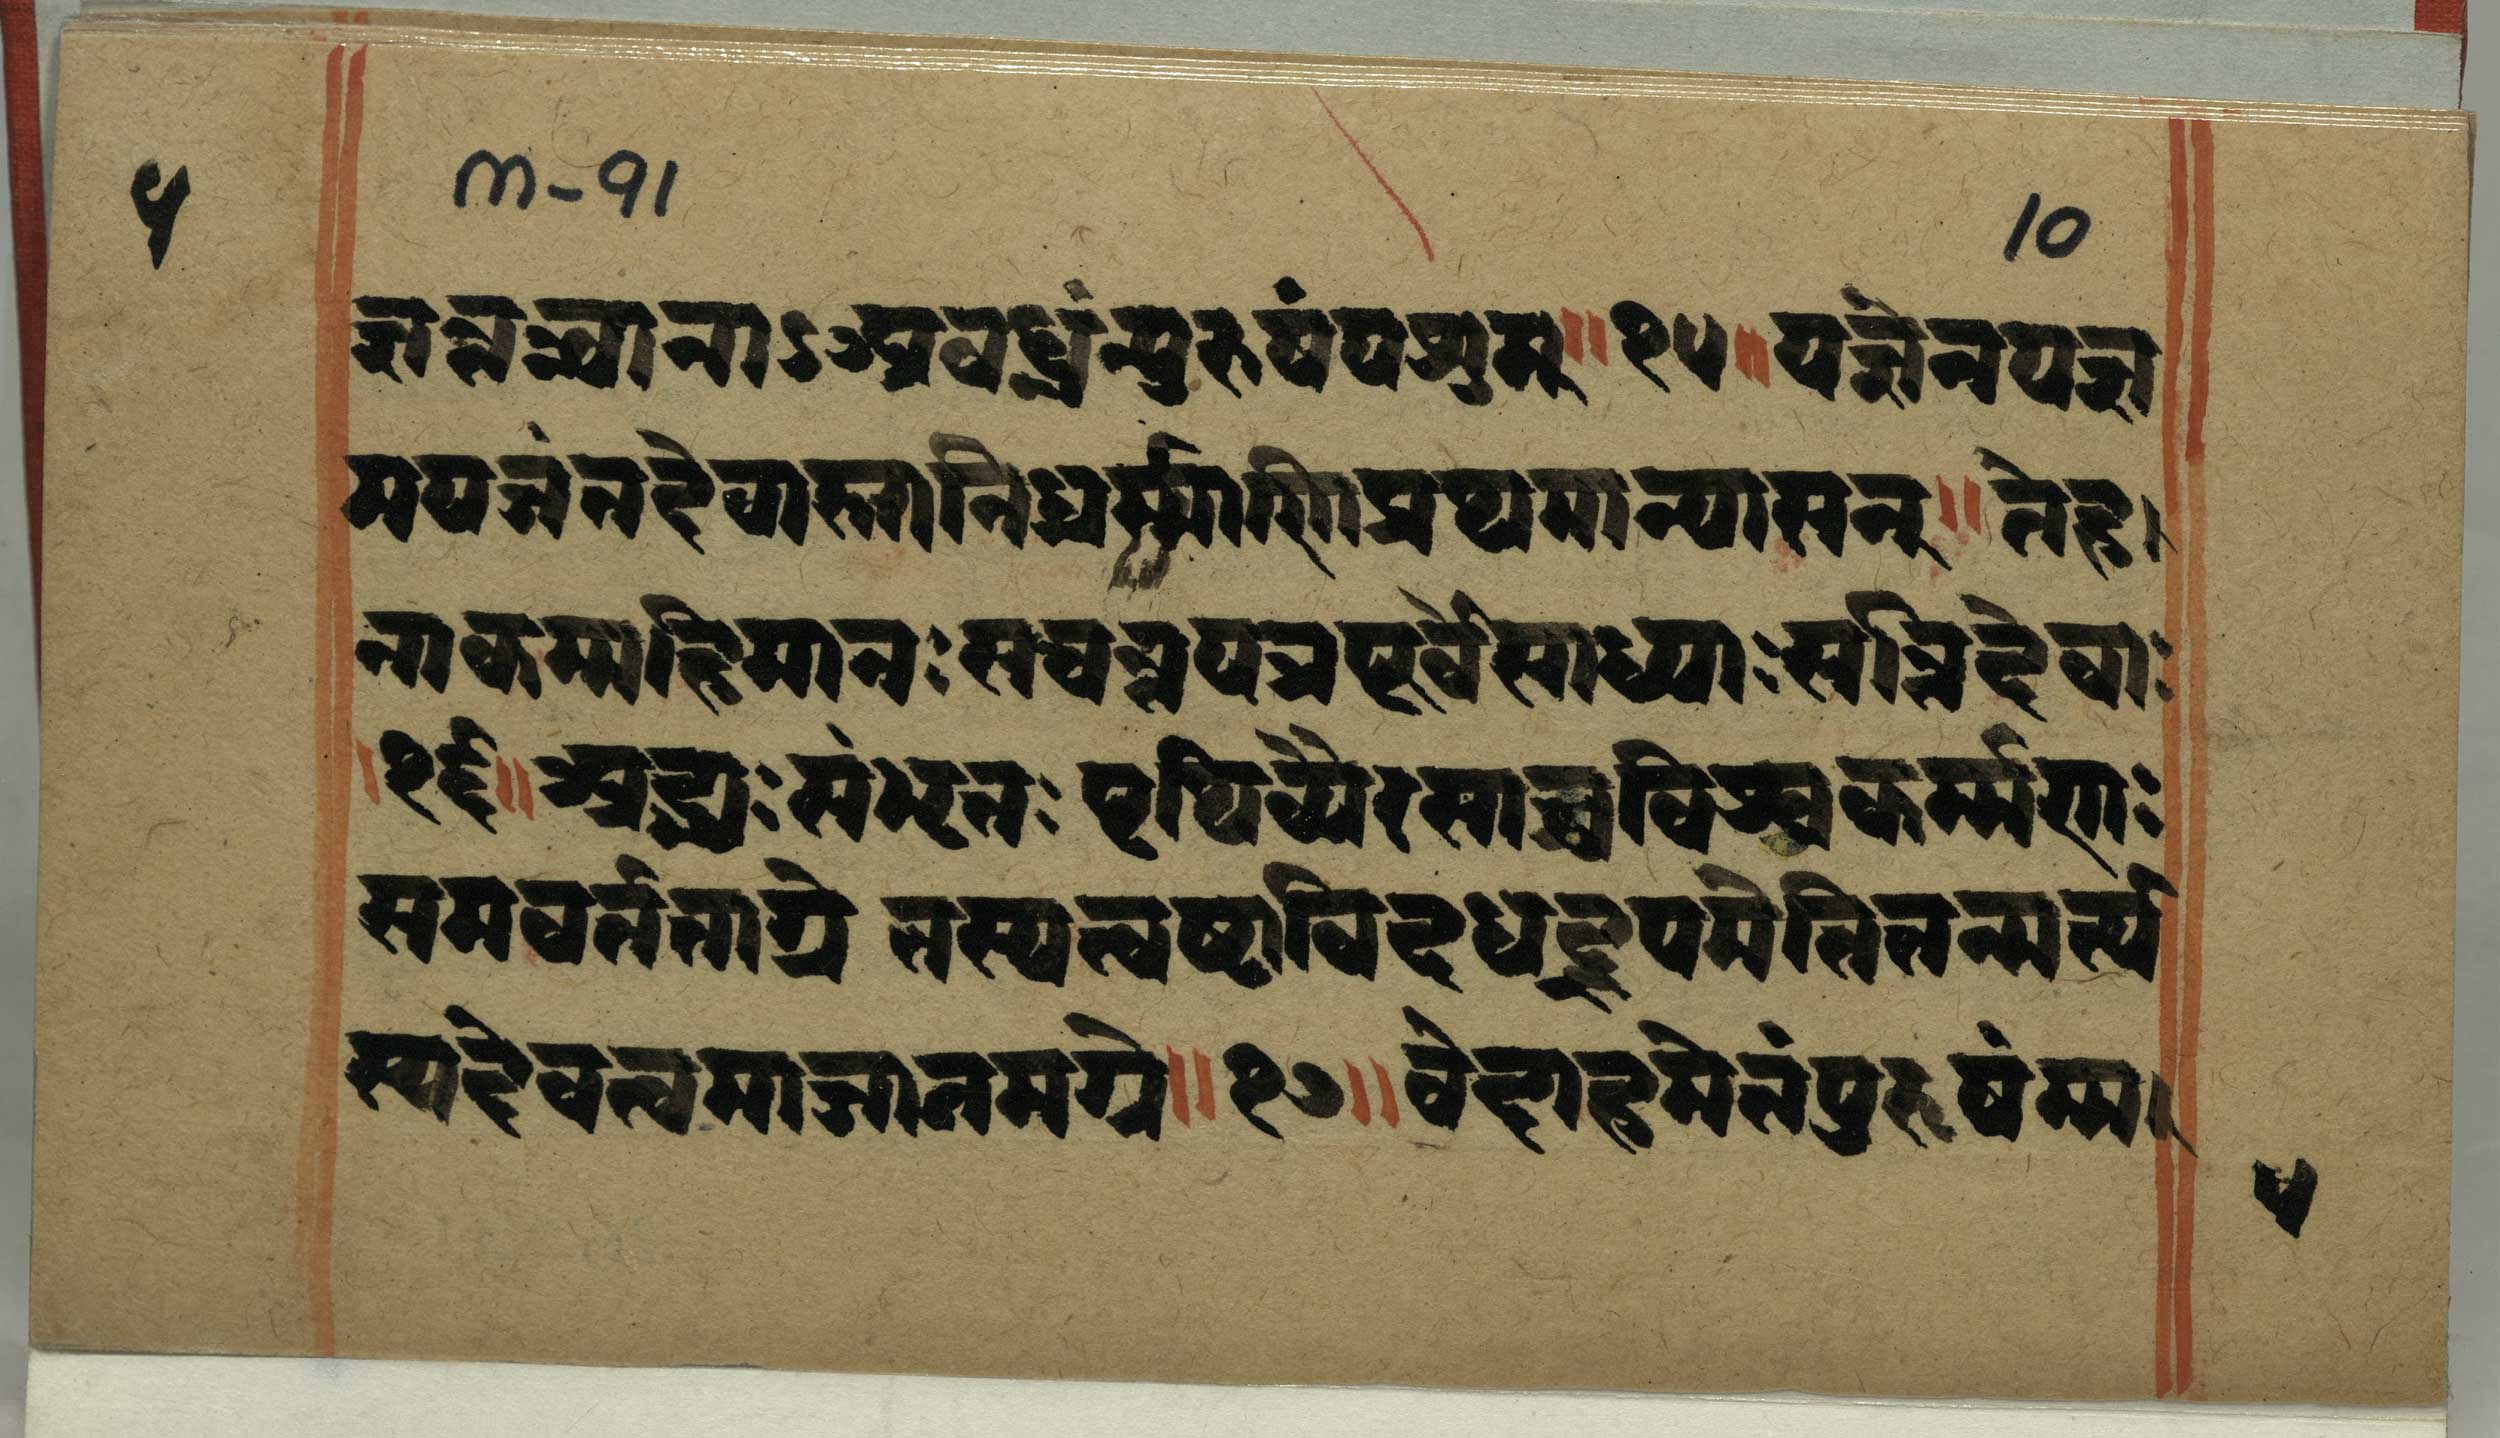 ५
m-91
10
ज्ञन्तन्वानाऽअबध्नंन्पुरुषंपशुम्॥१५॥यज्ञेनयज्ञ
मयजंतदेवास्तानिधर्म्माणिप्रथमान्यासन्॥तेह।
नाकम्महिमानःसचन्तयत्रपूर्वेसाध्याःसन्तिदेवाः
।१६॥अद्भ्यःसंभृतः पृथिव्यैरसाच्चविश्वकर्म्मणः
समवर्तताग्रे तस्यत्वष्टाविदधद्रूपमेतितन्मर्त्य
स्यदेवत्वमाजानमग्रे॥१७॥वेदाहमेतंपुरुषंम्म।
५